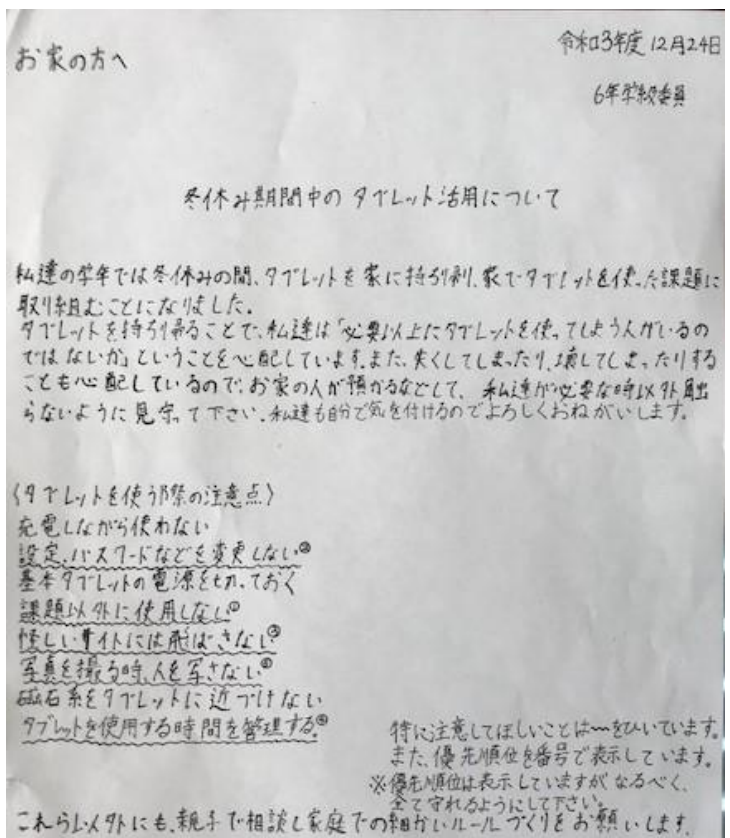 令和3年度 12月24日
お家の方へ
6年学級委員
冬休み期間中の タブレット活用について
私達の学年では冬休みの間、タブレットを家に持ち帰り、家でタブレットを使った課題に
取り組むことになりました。
タブレットを持ち帰ることで、私達は「必要以上にタブレットを使ってしまう人がいるの
ではないか」ということを心配しています。また、失くしてしまったり、壊してしまったりする
ことも心配しているので、お家の人が預かるなどして、私達が必要な時以外触
らないように見守って下さい。私達も自分で気を付けるのでよろしくおねがいします。
〈タブレットを使う際の注意点〉
充電しながら使わない
設定、パスワードなどを変更しない②
基本タブレットの電源を切っておく
課題以外に使用しない①
怪しいサイトには飛ばさない③
写真を撮る時、人を写さない
磁石系をタブレットに近づけない
タブレットを使用する時間を管理する。④
特に注意してほしいことは〜〜をひいています。
また、優先順位を番号で表示しています。
※優先順位は表示していますが なるべく、
全て守れるようにして下さい。
これら以外にも、親子で相談し家庭での細かいルールづくりをお願いします。